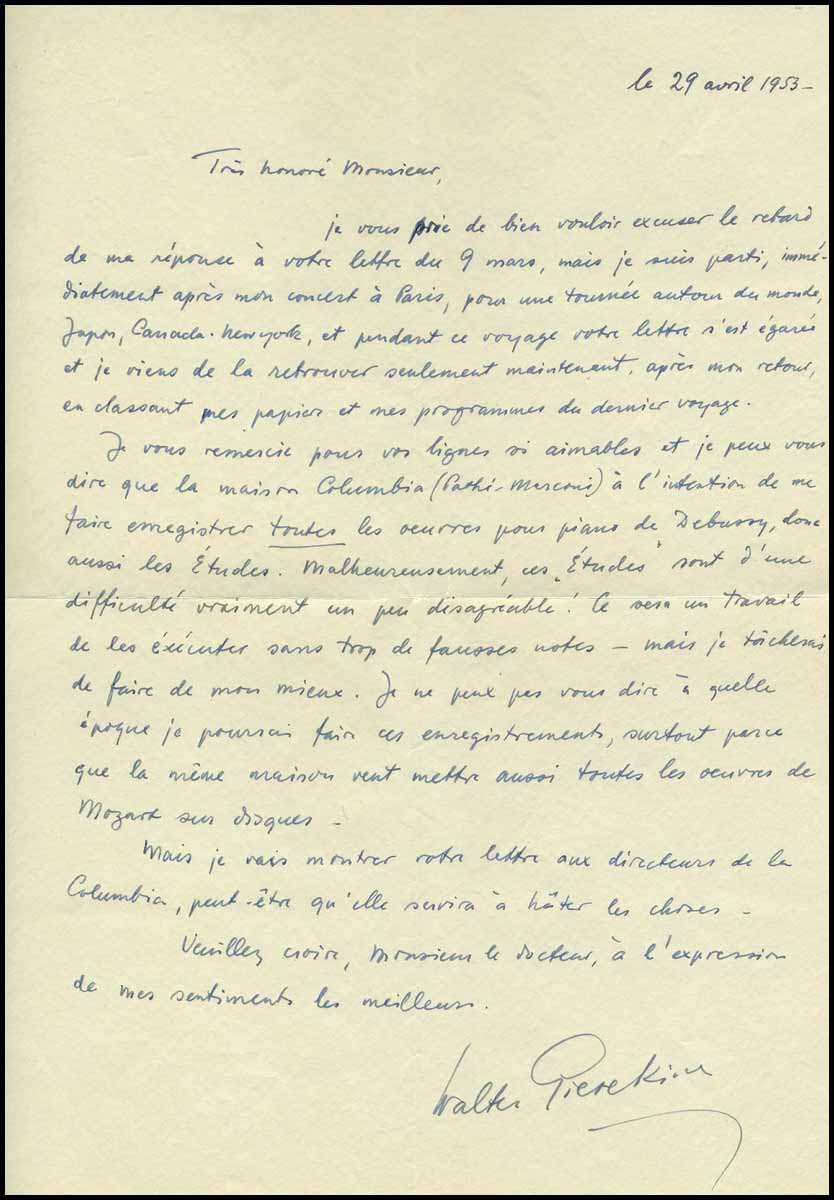 le 29 avril 1953 –
Très honoré Monsieur,
je vous prie de bien vouloir excuser le retard
de ma réponse à votre lettre du 9 mars, mais je suis parti, immé-
diatement après mon concert à Paris, pour une tournée autour du monde,
Japon, Canada - New york, et pendant ce voyage votre lettre s'est égarée
et je viens de la retrouver seulement maintenant, après mon retour,
en classant mes papiers et mes programmes du dernier voyage.
Je vous remercie pour vos lignes si aimables et je peux vous
dire que la maison Columbia (Pathé-Marconi) à l'intention de me
faire enregistrer toutes les oeuvres pour piano de Debussy, donc
aussi les Études. Malheureusement, ces „Études" sont d'une
difficulté vraiment un peu disagréable! Ce sera un travail
de les éxécuter sans trop de fausses notes – mais je tâcherai
de faire de mon mieux. Je ne peux pas vous dire à quelle
époque je pourrai faire ces enregistrements, surtout parce
que la même maison veut mettre aussi toutes les oeuvres de
Mozart sur disques –
Mais je vais montrer votre lettre aux directeurs de la
Columbia, peut-être qu'elle servira à hâter les choses –
Veuillez croire, Monsieur le docteur, à l'expression
de mes sentiments les meilleurs.
Walter Gieseking